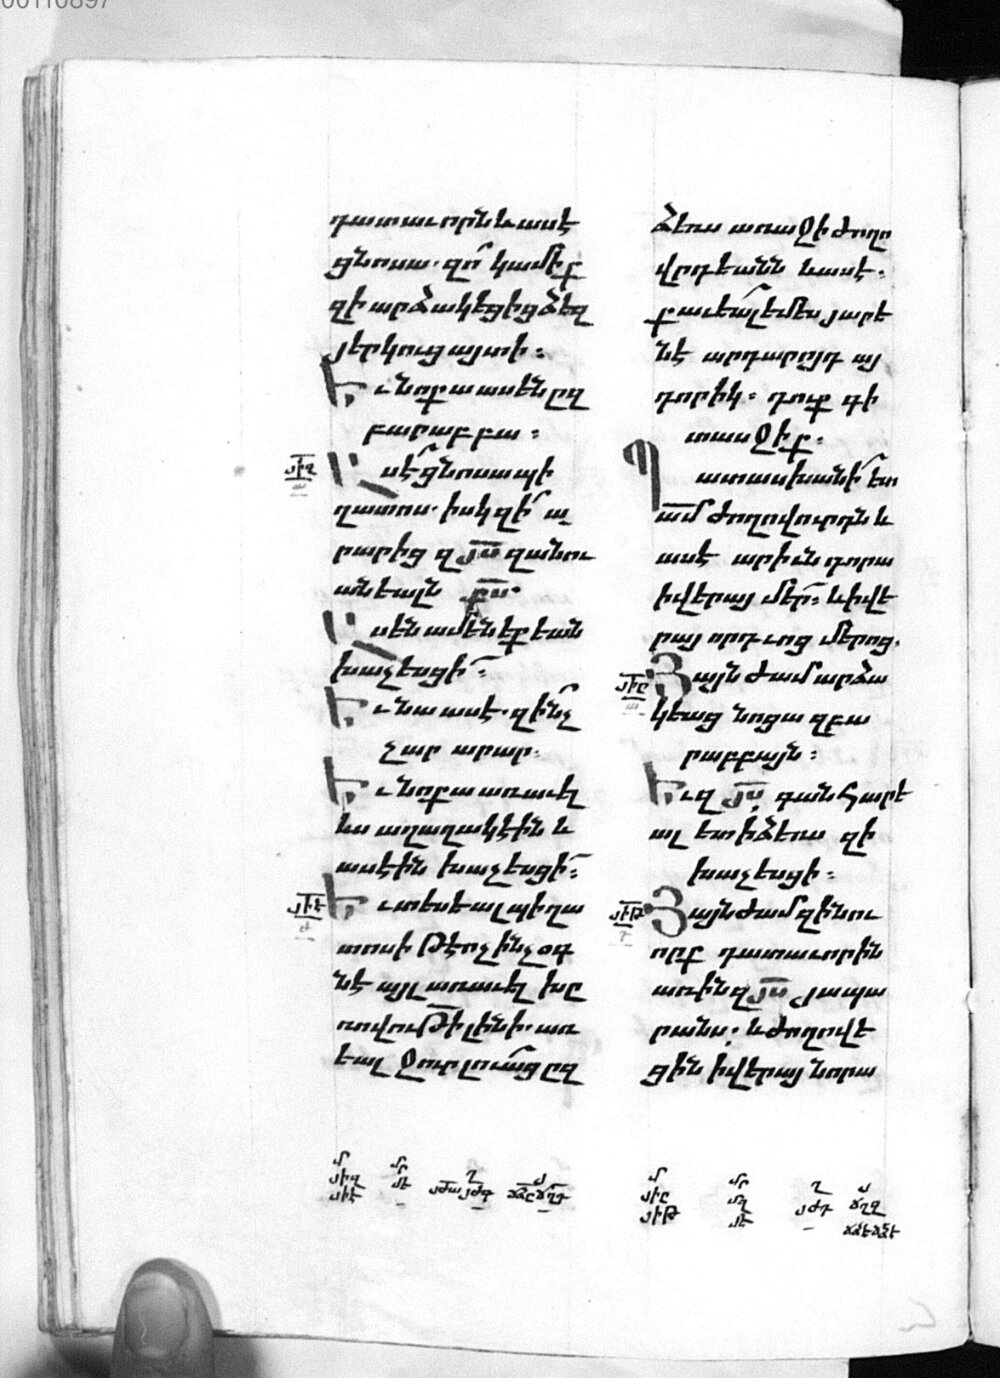 00110897
դատաւորն և ասէ
ցնոսա. զո՞ կամիք
զի արձակեցից ձեզ
յերկուց այտի:
Եւ նոքա ասեն ըզ
բարաբբա:
յիզ
Ասէ ցնոսա պի
ղատոս. իսկ զի՞ ա
րարից զյս զանու
անեալն քս.
Ասեն ամենեքեան
խաչեսցի:
Եւ նա ասէ. զինչ
չար արար.
Եւ նոքա առաւել
ևս աղաղակէին և
ասէին խաչեսցի:
յիէ
Եւ տեսեալ պիղա
տոսի թէ ոչ ինչ օգ
նէ այլ առաւել խը
ռովութի լինի. առ
եալ ջուր լուաց ըզ
ձեռս առաջի ժողո
վրդեանն և ասէ.
քաւեալ եմ ես յարե
նէ արդարոյդ այ
դորիկ: դուք գի
տասջիք:
Պատասխանի ետ
ամ ժողովուրդն և
ասէ արիւն դորա
ի վերայ մեր: և ի վե
րայ որդւոց մերոց.
յիը
Յայնժամ արձա
կեաց նոցա զբա
րաբբայն:
Եւ զյս գան հարե
ալ ետ ի ձեռս զի
խաչեսցի:
յիթ
Յայնժամ զինու
որք դատաւորին
առին զյս յապա
րանս. և ժողովե
ցին ի վերայ նորա